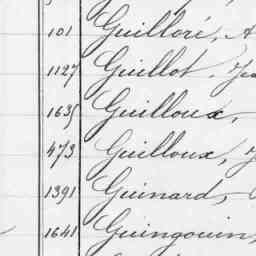 101 Guilloré, A
1127 Guillot, Je
1635 Guilloux,
473 Guilloux, J
1391 Guinard,
1641 Guingouin,